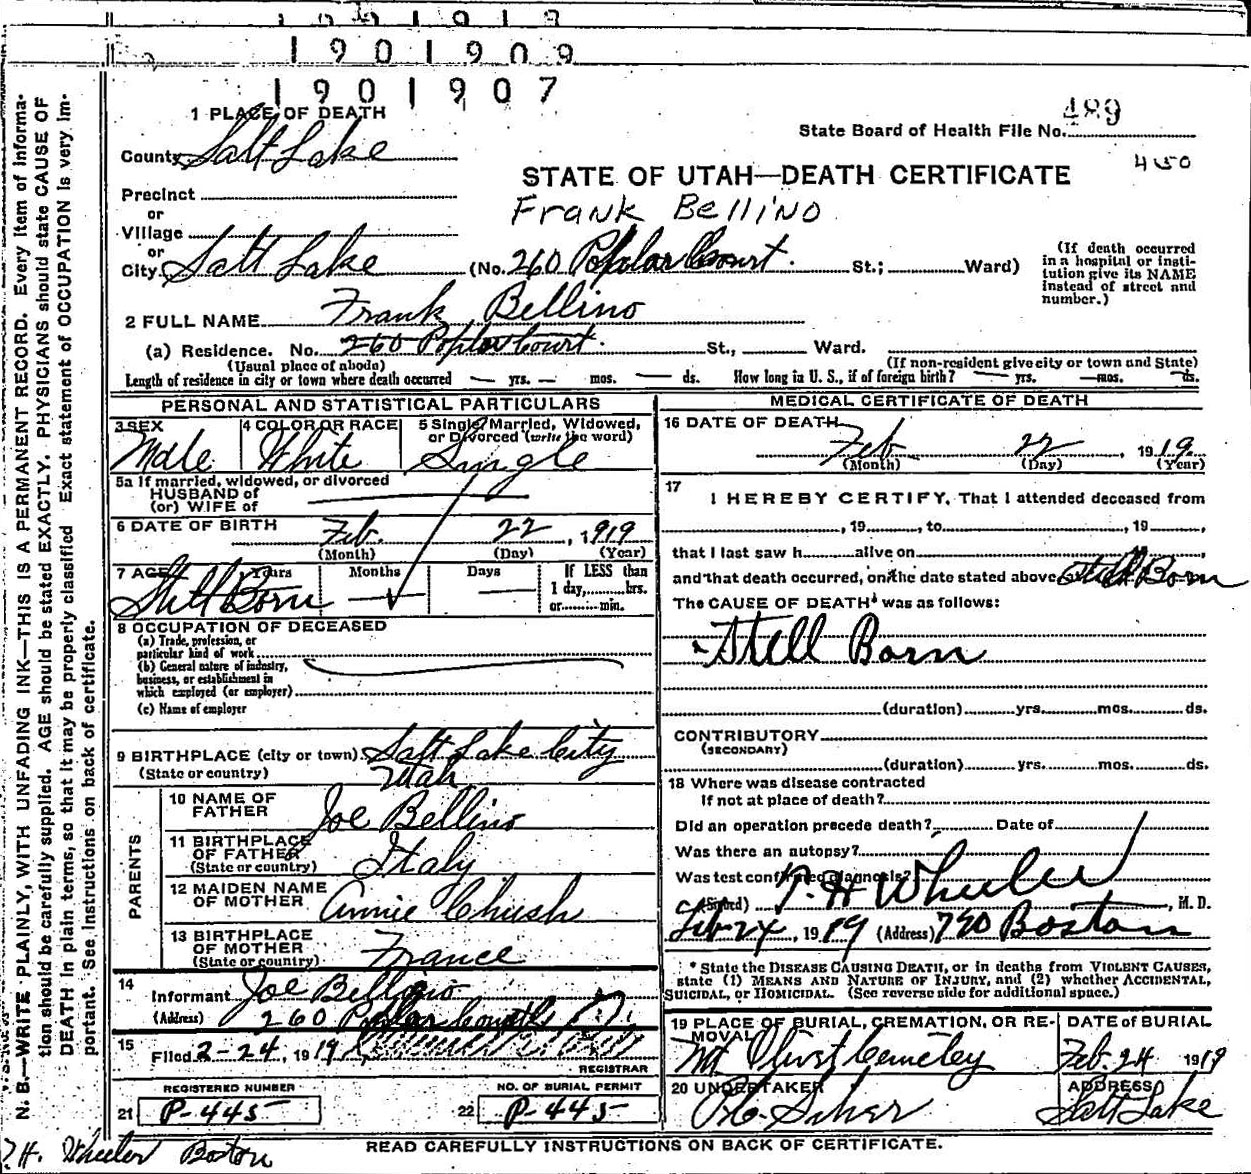 1901909
1901907
1 PLACE OF DEATH
489
State Board of Health File No.
County Salt Lake
450
STATE OF UTAH—DEATH CERTIFICATE
Precinct
Frank Bellino
or
Village
or
City Salt Lake (No. 260 Poplar Court. St.; Ward)
(If death occurred in a hospital or insti-
tution give its NAME
instead of street and
number.)
2 FULL NAME Frank Bellino
(a) Residence. No. 260 Poplar Court. St., Ward.
(Usual place of abode) (If non-resident give city or town and State)
Length of residence in city or town where death occurred — yrs. — mos. — ds. How long in U. S., if of foreign birth? — yrs. — mos. — ds.
PERSONAL AND STATISTICAL PARTICULARS
3 SEX Male
4 COLOR OR RACE White
5 Single, Married, Widowed,
or Divorced (write the word)
Single
5a If married, widowed, or divorced
HUSBAND of
(or) WIFE of
6 DATE OF BIRTH Feb. 22, 1919
(Month) (Day) (Year)
7 AGE Years Months Days If LESS than
1 day, hrs.
or min.
Still Born
8 OCCUPATION OF DECEASED
(a) Trade, profession, or
particular kind of work
(b) General nature of industry,
business, or establishment in
which employed (or employer)
(c) Name of employer
9 BIRTHPLACE (city or town) Salt Lake City
(State or country) Utah
PARENTS
10 NAME OF
FATHER Joe Bellino
11 BIRTHPLACE
OF FATHER
(State or country) Italy
12 MAIDEN NAME
OF MOTHER Annie Chush
13 BIRTHPLACE
OF MOTHER
(State or country) France
14
Informant Joe Bellino
(Address) 260 Poplar Court
15
Filed 2-24, 1919
REGISTRAR
REGISTERED NUMBER
21 P-445
NO. OF BURIAL PERMIT
22 P-445
MEDICAL CERTIFICATE OF DEATH
16 DATE OF DEATH
Feb 22, 1919
(Month) (Day) (Year)
17
I HEREBY CERTIFY, That I attended deceased from
, 19 , to , 19 ,
that I last saw h alive on ,
and that death occurred, on the date stated above, at Still Born
The CAUSE OF DEATH* was as follows:
Still Born
(duration) yrs. mos. ds.
CONTRIBUTORY
(SECONDARY)
(duration) yrs. mos. ds.
18 Where was disease contracted
If not at place of death?
Did an operation precede death? Date of
Was there an autopsy?
Was test confirmed diagnosis?
(Signed) T. H Wheeler, M. D.
Feb 24, 1919 (Address) 790 Boston
* State the DISEASE CAUSING DEATH, or in deaths from VIOLENT CAUSES,
state (1) MEANS AND NATURE OF INJURY, and (2) whether ACCIDENTAL,
SUICIDAL, or HOMICIDAL. (See reverse side for additional space.)
19 PLACE OF BURIAL, CREMATION, OR RE-
MOVAL
Mt Olivet Cemetery
DATE OF BURIAL
Feb. 24 1919
20 UNDERTAKER
ADDRESS
Salt Lake
T H. Wheeler Boston
READ CAREFULLY INSTRUCTIONS ON BACK OF CERTIFICATE.
N. B.—WRITE PLAINLY, WITH UNFADING INK—THIS IS A PERMANENT RECORD. Every item of informa-
tion should be carefully supplied. AGE should be stated EXACTLY. PHYSICIANS should state CAUSE OF
DEATH in plain terms, so that it may be properly classified Exact statement of OCCUPATION is very im-
portant. See instructions on back of certificate.